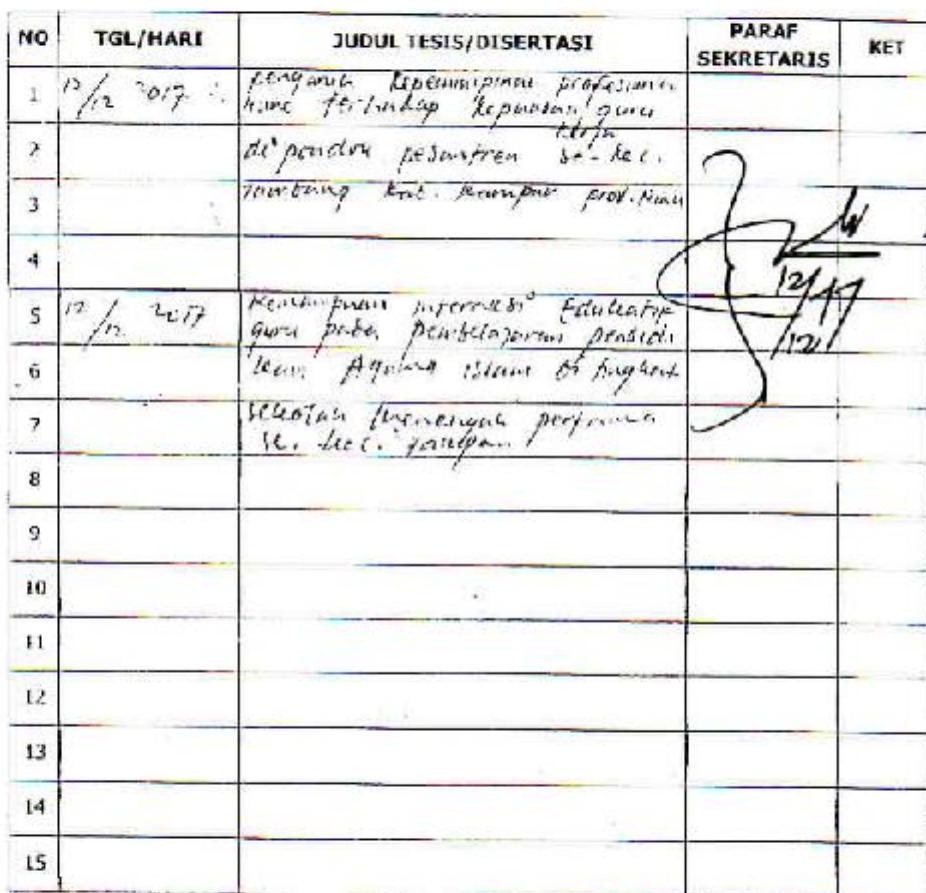 NO TGL/HARI JUDUL TESIS/DISERTASI PARAF SEKRETARIS KET
1 12/12 2017 pengaruh kepemimpinan profesional
terhadap kepuasan guru
kerja
2 di pondok pesantren se-kec.
3 Tambang kab. kampar prov. Riau
4
5 12/12 2017 kemampuan interaksi Edukatif
guru pada pembelajaran pendidi
6 kan Agama islam di tingkat
7 sekolah menengah pertama
se. kec.
8
9
10
11
12
13
14
15
12/12/17